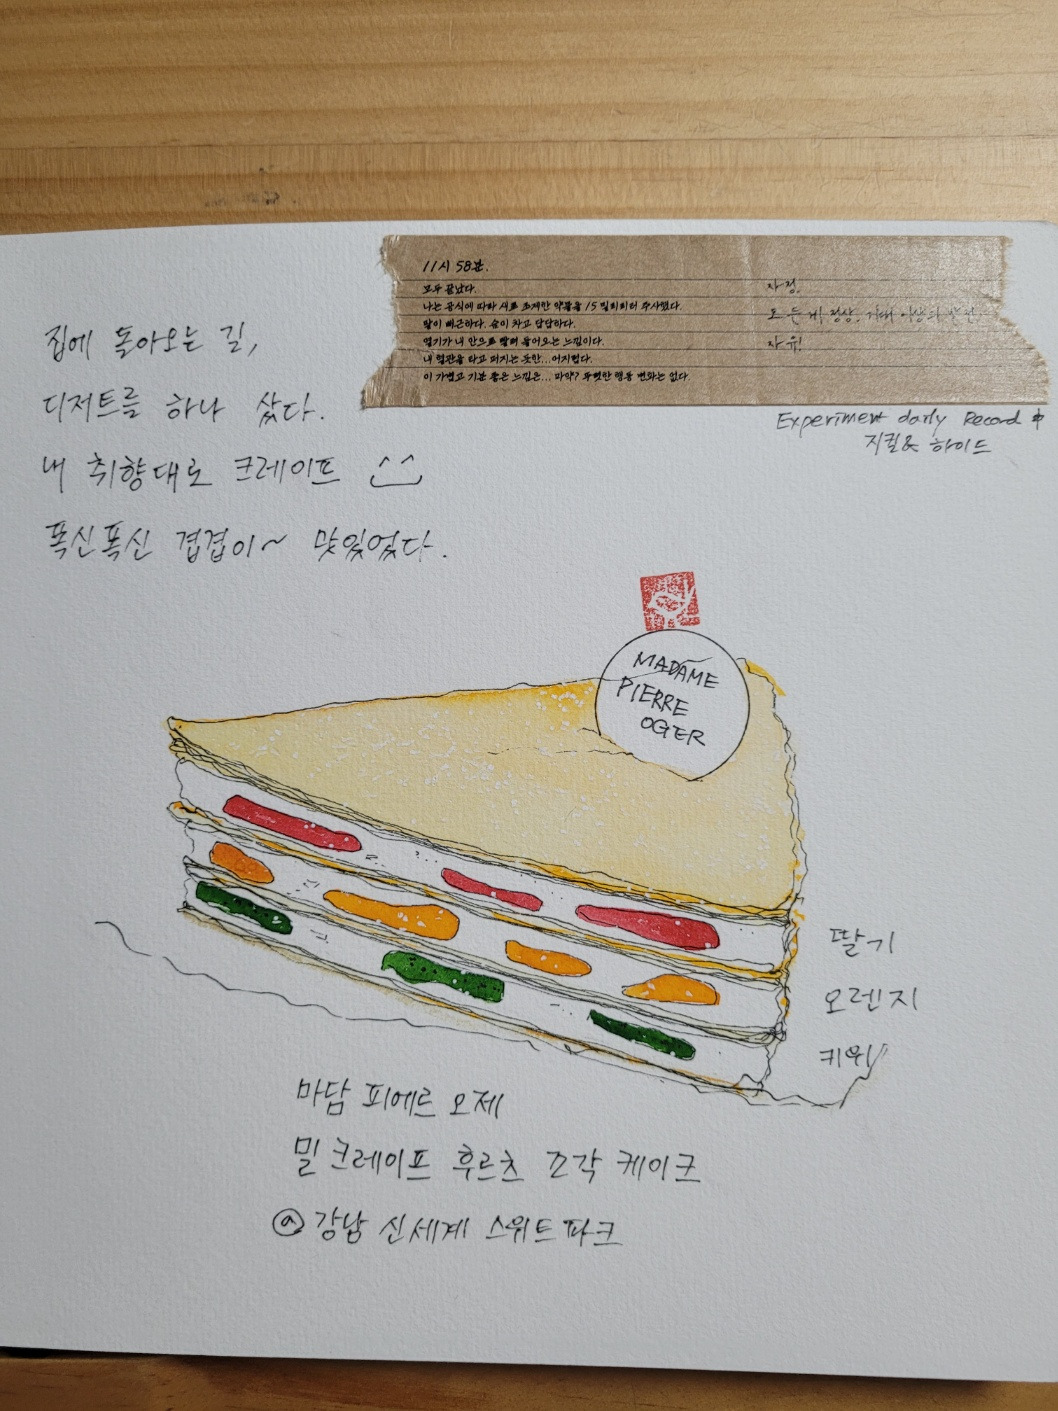 11시 58분.
모두 끝났다.
나는 공식에 따라 새로 조제한 약물을 15 밀리리터 주사했다.
팔이 뻐근하다. 숨이 차고 답답하다.
열기가 내 안으로 빨려 들어오는 느낌이다.
내 혈관을 타고 퍼지는 듯한...어지럽다.
이 가볍고 기분 좋은 느낌은... 마약? 뚜렷한 행동 변화는 없다
자정.
모든 게 정상. 기대 이상의
자유!
Experiment daily Record
지킬 & 하이드
집에 돌아오는 길,
디저트를 하나 샀다.
내 취향대로 크레이프
폭신폭신 겹겹이~ 맛있었다.
MADAME
PIERRE
OGER
딸기
오렌지
키위
마담 피에르 오제
밀 크레이프 후르츠 조각 케이크
@ 강남 신세계 스위트파크